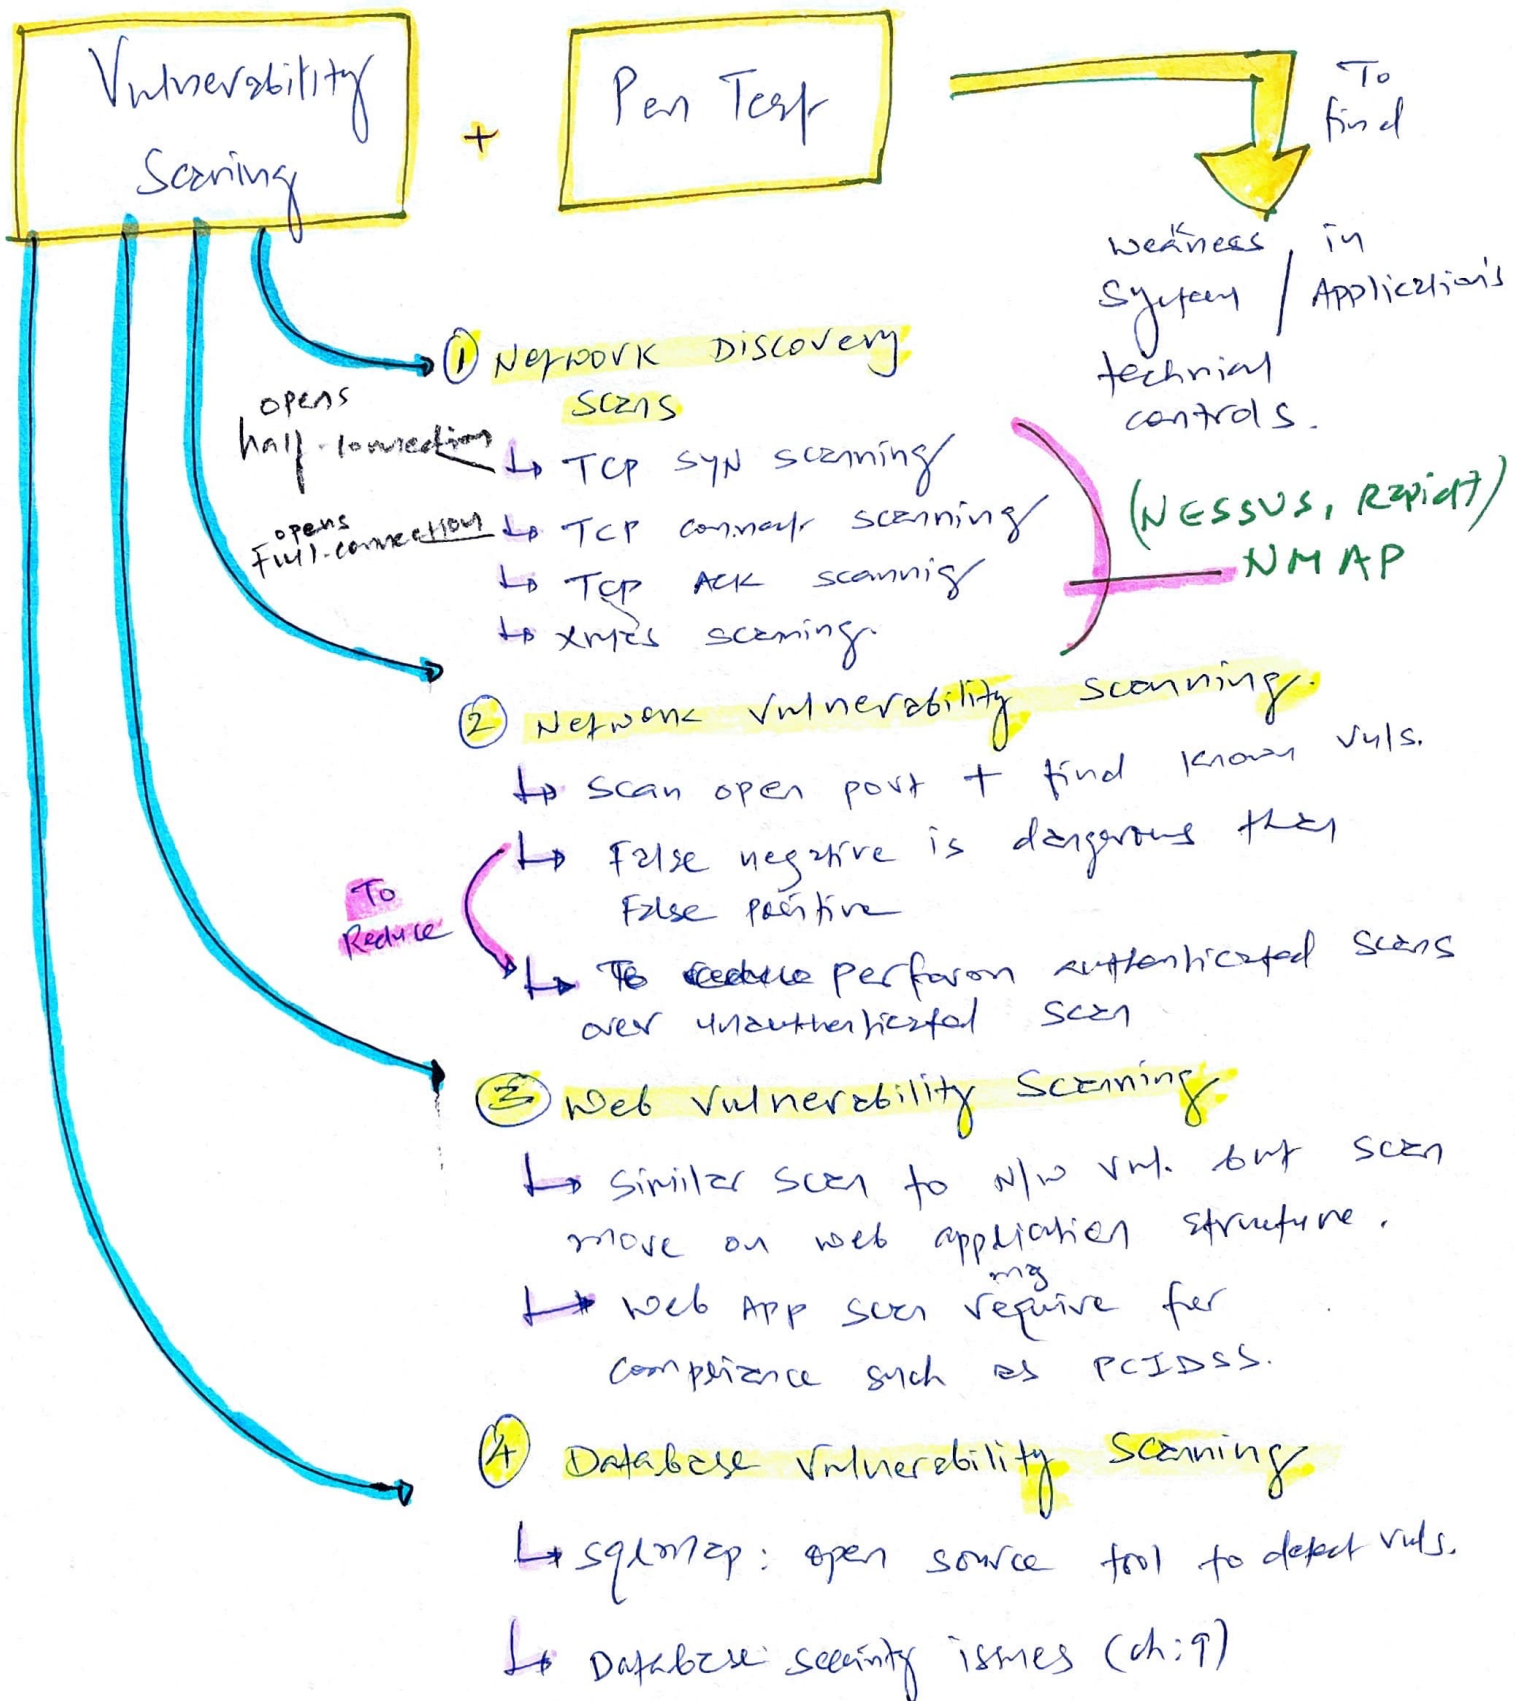 Vulnerability
Scaning
+
Pen Test
To
find
weakness
system
/
in
Applications
technical
controls.
① Network Discovery
Scans
opens
half-connection
↳ TCP SYN scanning
opens
Full-connection
↳ TCP connect scanning
↳ TCP ACK scannig
↳ xmas scanning.
(NESSUS, Rapid7)
NMAP
② Network Vulnerability Scanning.
↳ Scan open port + find known vuls.
↳ False negative is dangerous than
False positive
To
Reduce
↳ To reduce perform authenticated scans
over unauthenticated scan
③ Web Vulnerability Scanning
↳ Similar scan to N/W vul. but scan
more on web application structure.
↳ Web App scan require for
mg
compliance such as PCIDSS.
④ Database Vulnerability Scanning
↳ sqlmap: open source tool to detect vuls.
↳ Database security issues (ch:9)